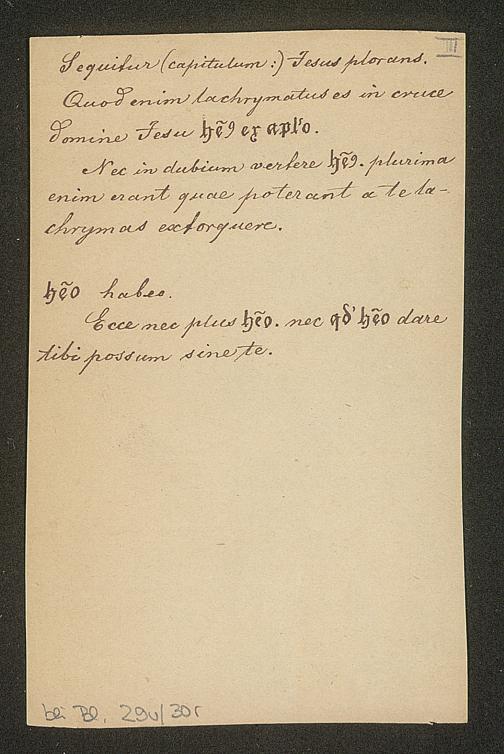 III
Sequitur (capitulum:) Jesus plorans.
Quod enim lachrymatus es in cruce
domine Jesu hẽꝯ ex aplo.
Nec in dubium vertere hẽꝯ. plurima
enim erant quae poterant a te la-
chrymas extorquere.
hẽo habeo.
Ecce nec plus hẽo. nec qd' hẽo dare
tibi possum sine te.
bei Bl. 29v/30r